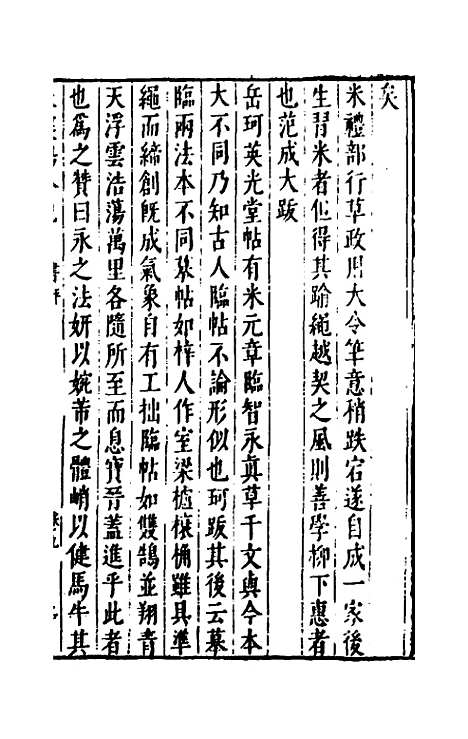 矣
米禮部行草政用大令筆意稍跌宕遂自成一家後
生習米者但得其踰繩越契之風則善學柳下惠者
也范成大跋
岳珂英光堂帖有米元章臨智永眞草千文與今本
大不同乃知古人臨帖不論形似也珂跋其後云摹
臨兩法本不同摹帖如梓人作室梁櫨榱桷雖具準
繩而締創旣成氣象自有工拙臨帖如雙鵠並翔青
天浮雲浩蕩萬里各隨所至而息寶晉蓋進乎此者
也爲之贊曰永之法姸以婉芾之體峭以健馬牛其
書評